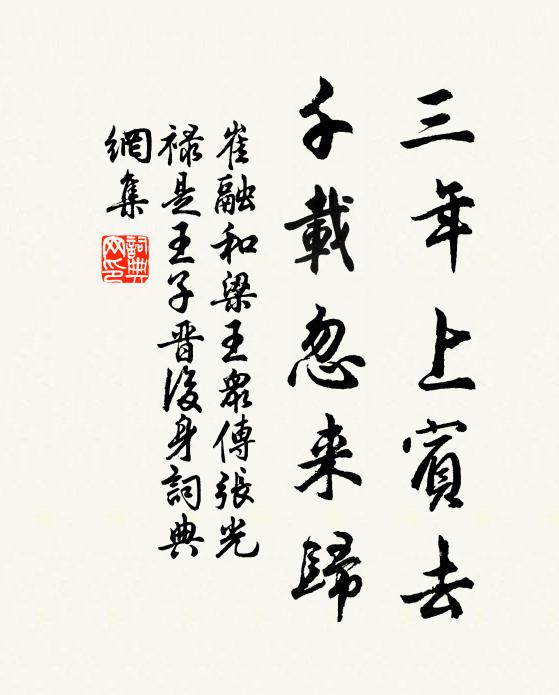 三年上賓去
千載忽来歸
崔融和梁王眾傳張光
禄是王子晋後身詞典
網集
詞典网印